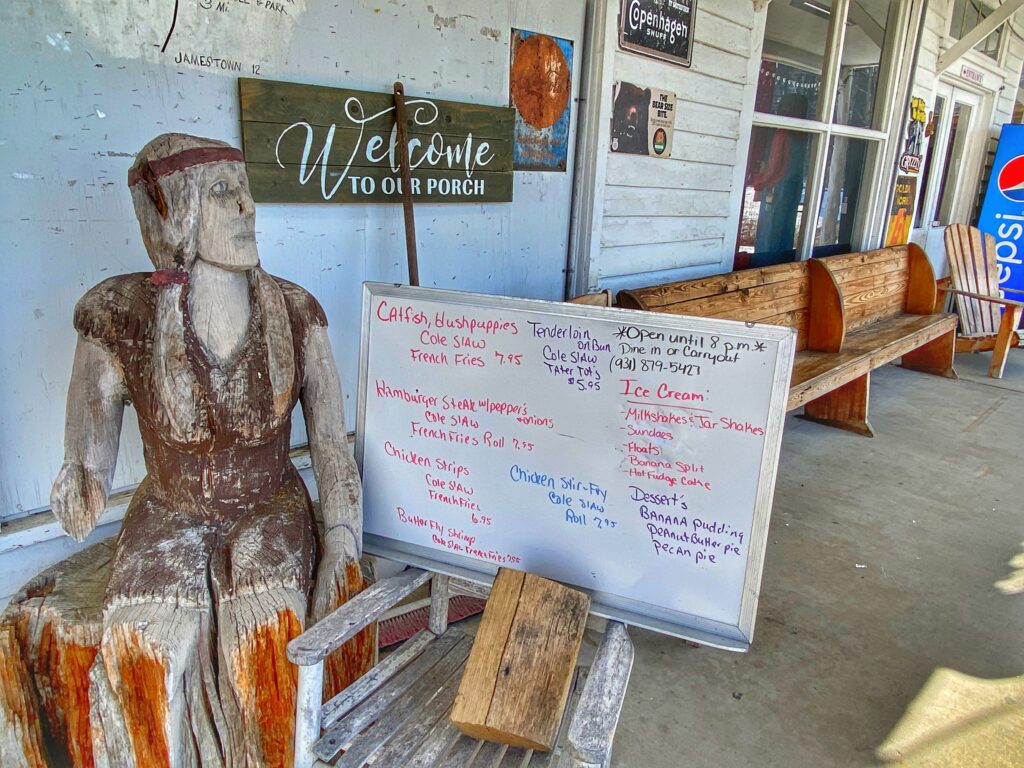 & PARK
3 Mi.
JAMESTOWN 12
Welcome
TO OUR PORCH
Copenhagen
SNUFF
THE
BEAR SIZE
BITE.
ENTRANCE
pepsi
Catfish, hushpuppies
Cole Slaw
French Fries 7.95
Hamburger Steak w/pepper's
+onions
Cole Slaw
French Fries Roll 7.95
Chicken Strips
Cole Slaw
French Fries
6.95
Butterfly Shrimp
Cole Slaw French Fries 7.95
Tenderloin
on Bun
Cole Slaw
Tater Tot's
$5.95
Chicken Stir-Fry
Cole Slaw
Roll 7.95
*Open until 8 p.m.*
Dine in or Carryout
(931) 879-5427
Ice Cream:
- Milkshakes & Jar Shakes
- Sundaes
- Floats
- Banana Split
- Hot Fudge Cake
Dessert's
Banana Pudding
Peanut Butter pie
Pecan pie